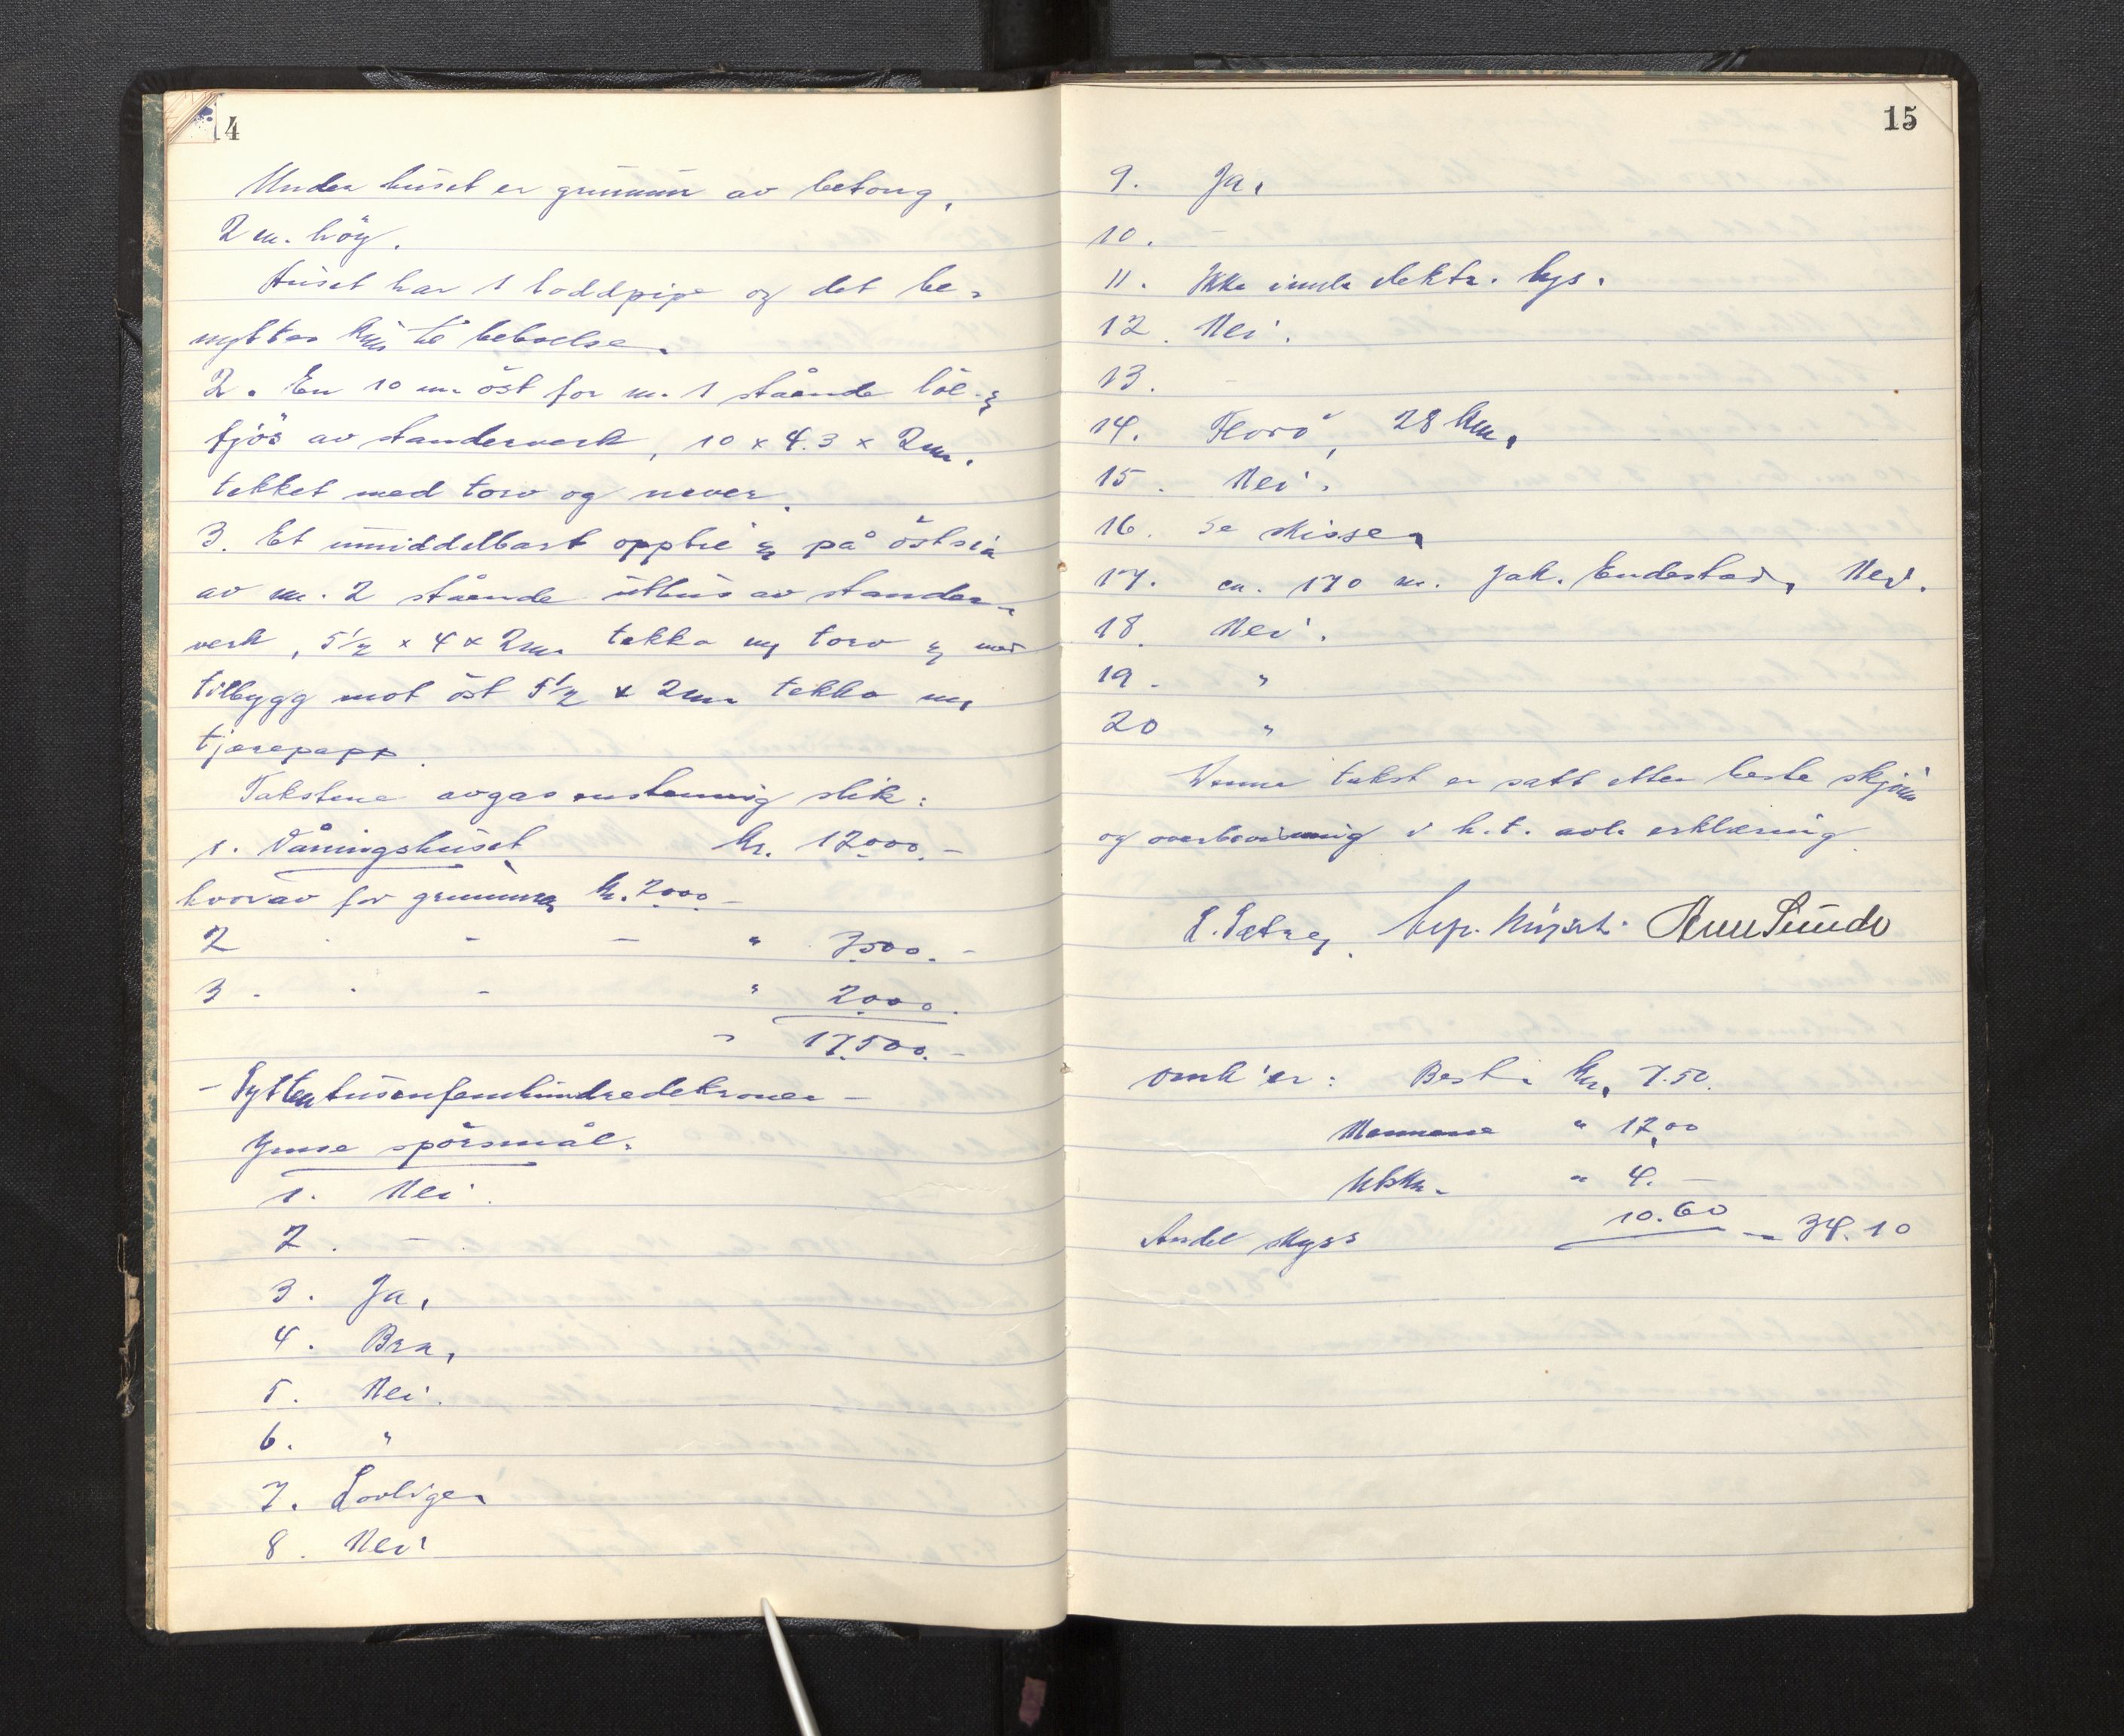 14
Under huset er grunnmur av betong,
2 m. höy.
Huset har 1 loddpipe og det be-
nyttes kun til beboelse.
2. En 10 m. öst for nr. 1 stående löe- &
fjös av standerverk, 10 x 4.3 x 2 m.
tekket med torv og never.
3. Et umiddelbart opptil & på östsia
av nr. 2 stående uthus av stander-
verk, 5½ x 4 x 2 m. tekka m/ torv & med
tilbygg mot öst 5½ x 2 m. tekka m/
tjærepapp.
Takstene avgas enstemmig slik:
1. Våningshuset kr. 12000.-
hvorav for grunnmur kr. 2000.-
2 - - " 3500.-
3 - - " 2000.
" 17.500.-
- Syttentusenfemhundredekroner -
Ymse spörsmål.
1. Nei.
2. -
3. Ja.
4. Bra.
5. Nei.
6. "
7. Lovlige.
8. Nei
15
9. Ja.
10. -
11. Ikke innla elektr. lys.
12. Nei.
13. -
14. Florö, 28 km.
15. Nei.
16. Se skisse.
17. ca. 170 m. Jak. Endestad, Nei.
18. Nei.
19. "
20 "
Denne takst er satt etter beste skjönn
og overbevisning i h.t. avla erklæring.
Omk'er: Best. kr. 7.50.
Mennene " 12.00
Utskr. " 4.-
Andel skyss 10.60 - 34.10